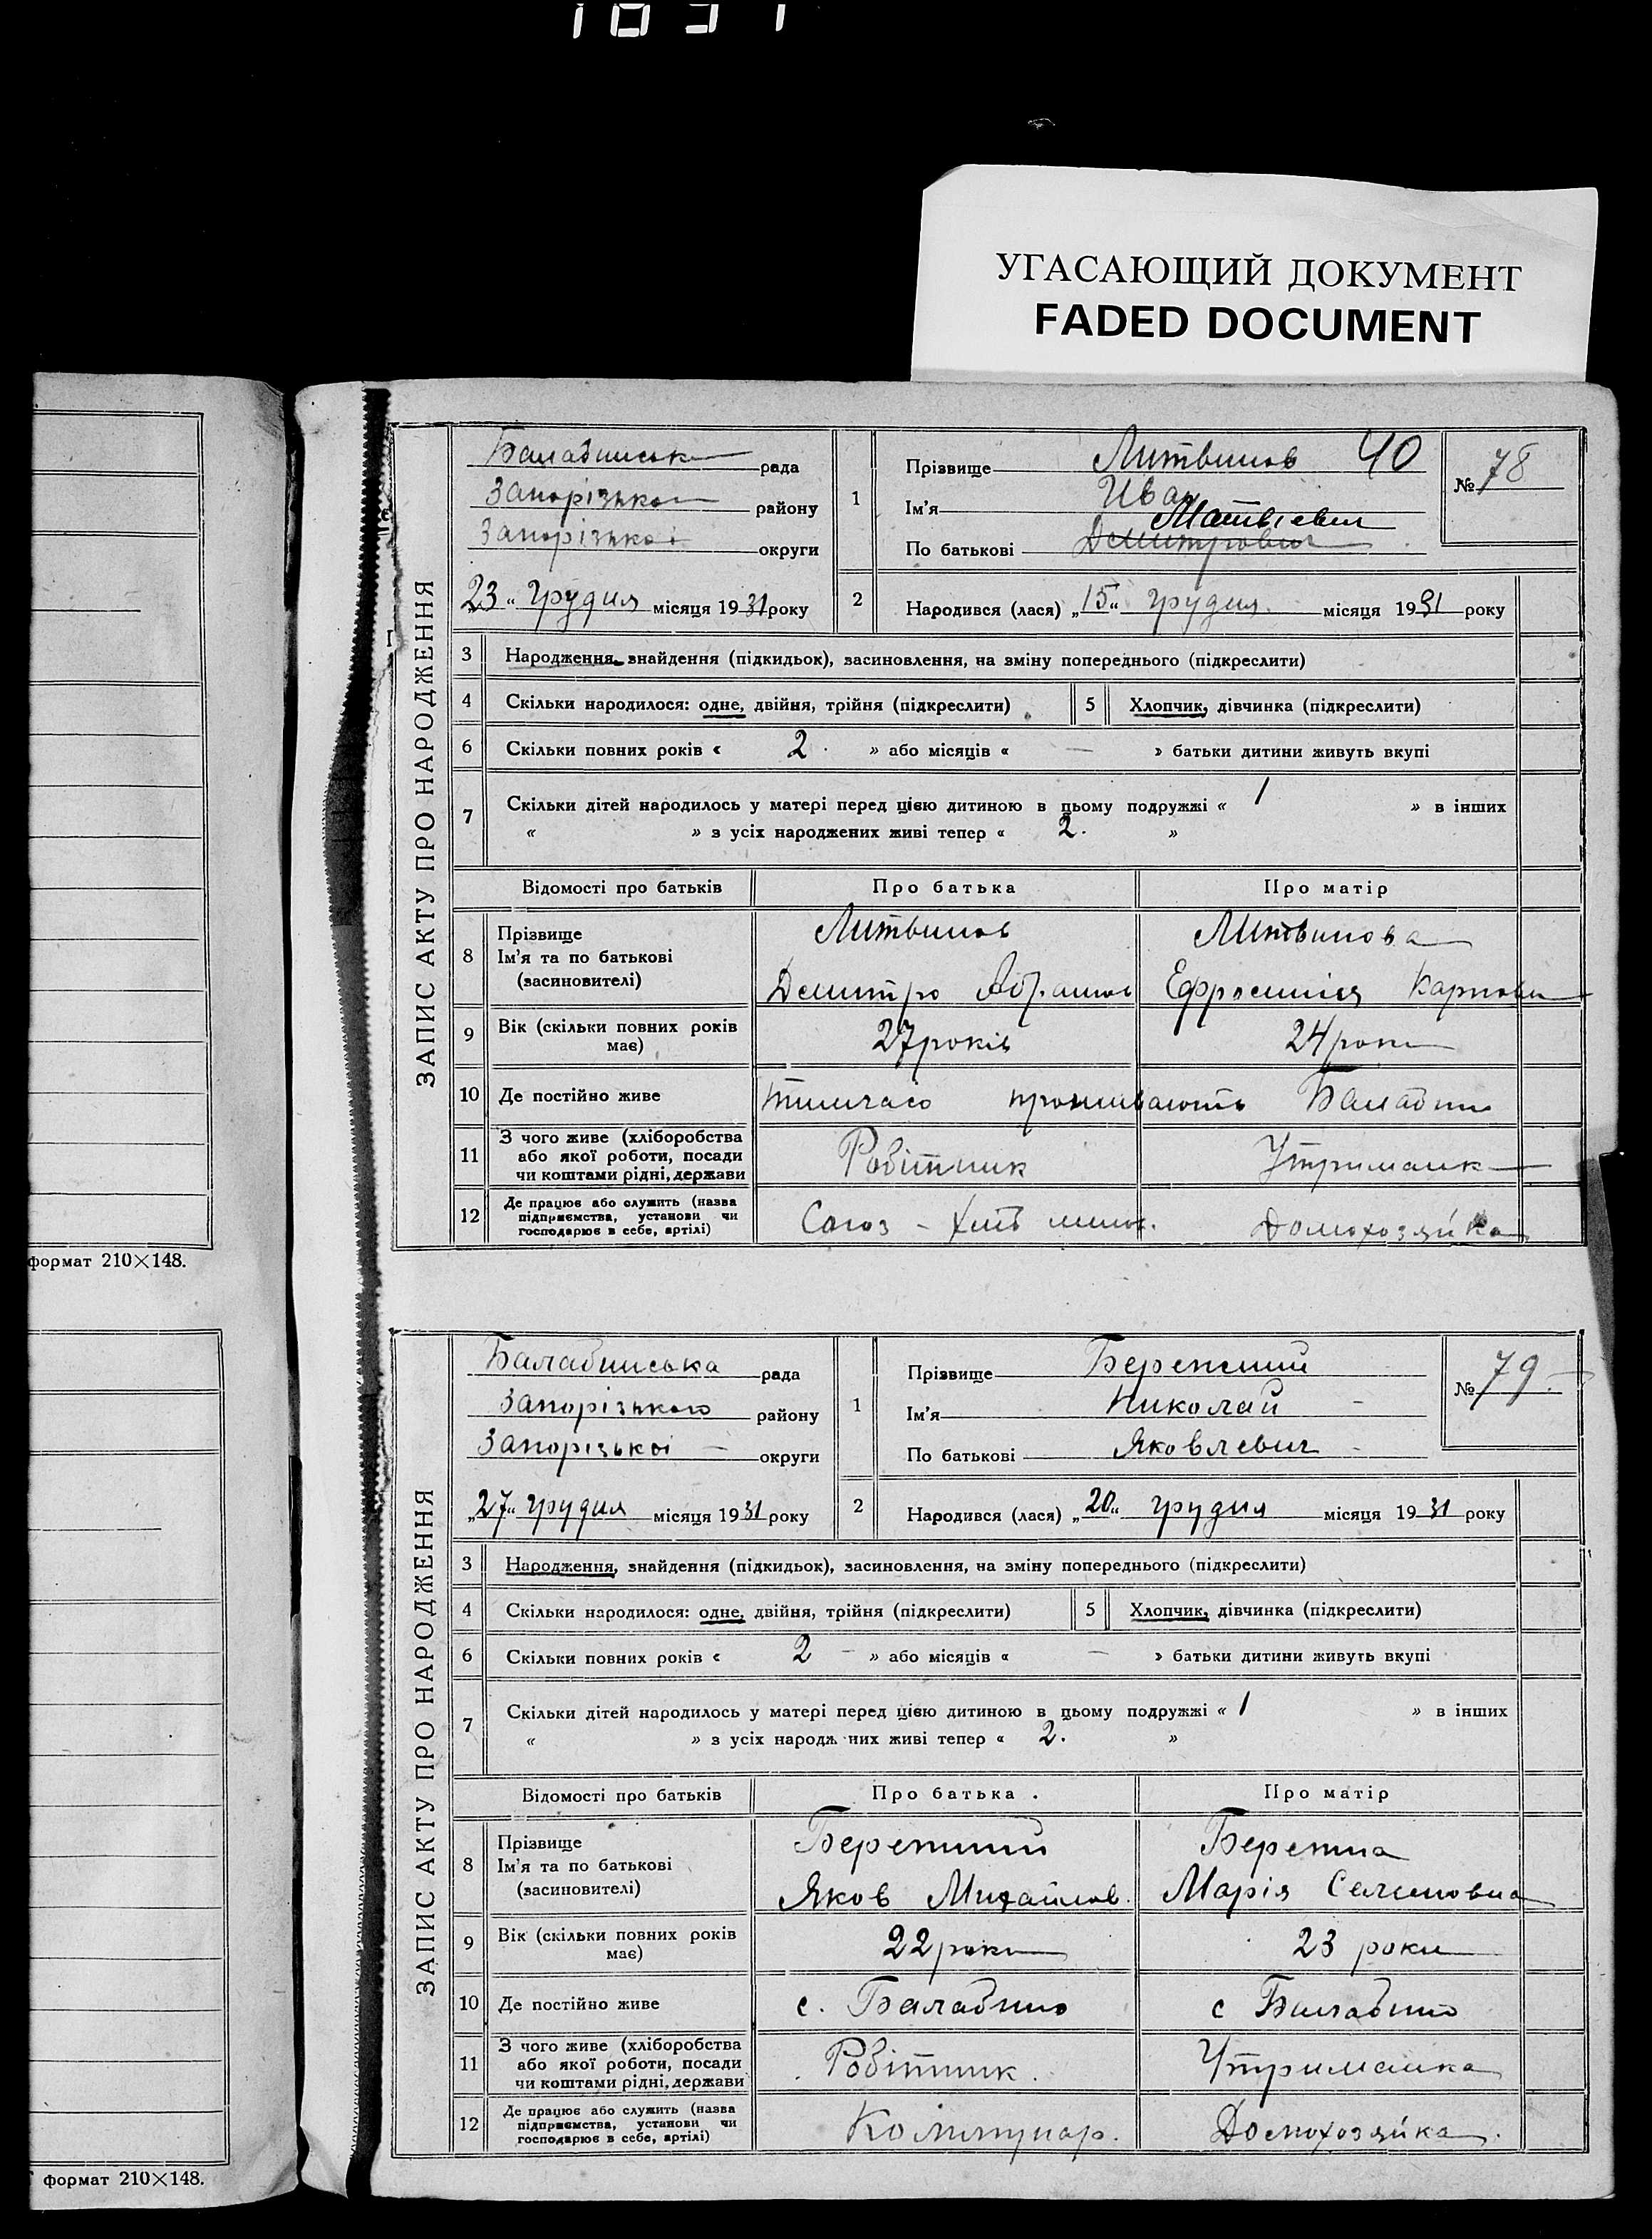 УГАСАЮЩИЙ ДОКУМЕНТ
FADED DOCUMENT
формат 210×148.
формат 210×148.
ЗАПИС АКТУ ПРО НАРОДЖЕННЯ
Балабинськ рада
Запорізько району
Запорізької округи
23 " грудня місяця 1931 року
1
Прізвище Литвинов 40
Ім'я Иван
Матвієвич
По батькові Демитрович
№ 78
2 Народився (лася) „15" грудня місяця 1931 року
3 Народження, знайдення (підкидьок), засиновлення, на зміну попереднього (підкреслити)
4 Скільки народилося: одне, двійня, трійня (підкреслити) 5 Хлопчик, дівчинка (підкреслити)
6 Скільки повних років « 2 » або місяців « — » батьки дитини живуть вкупі
7 Скільки дітей народилось у матері перед цією дитиною в цьому подружжі « 1 » в інших
« » з усіх народжених живі тепер « 2. »
Відомості про батьків Про батька Про матір
8 Прізвище Ім'я та по батькові (засновителі)
Литвинов Литвинова
Демитро Абрамов Ефросинія Карпов
9 Вік (скільки повних років має) 27 років 24 роки
10 Де постійно живе тимчасо проживають Балабино
11 З чого живе (хліборобства або якої роботи, посади чи коштами рідні, держави Робітник Утриманк
12 Де працює або служить (назва підприємства, установи чи господарює в себе, артілі) Союз - Хліб Домохозяйка
ЗАПИС АКТУ ПРО НАРОДЖЕННЯ
Балабинська рада
Запорізького району
Запорізької округи
„27" грудня місяця 1931 року
1
Прізвище Бережний
Ім'я Николай
По батькові Яковлевич
№ 79.
2 Народився (лася) „20" грудня місяця 1931 року
3 Народження, знайдення (підкидьок), засиновлення, на зміну попереднього (підкреслити)
4 Скільки народилося: одне, двійня, трійня (підкреслити) 5 Хлопчик, дівчинка (підкреслити)
6 Скільки повних років « 2 — » або місяців « — » батьки дитини живуть вкупі
7 Скільки дітей народилось у матері перед цією дитиною в цьому подружжі « 1 » в інших
« » з усіх народж них живі тепер « 2. »
Відомості про батьків Про батька Про матір
8 Прізвище Ім'я та по батькові (засиновителі)
Бережний Бережна
Яков Михайлов. Марія Семеновна
9 Вік (скільки повних років має) 22 роки 23 роки
10 Де постійно живе с. Балабино с Балабино
11 З чого живе (хліборобства або якої роботи, посади чи коштами рідні, держави Робітник Утриманка
12 Де працює або служить (назва підприємства, установи чи господарює в себе, артілі) Коммунар. Домохозяйка.